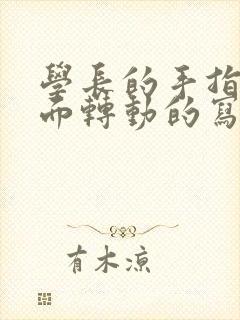 學長的手指
而轉動的寫
有木涼